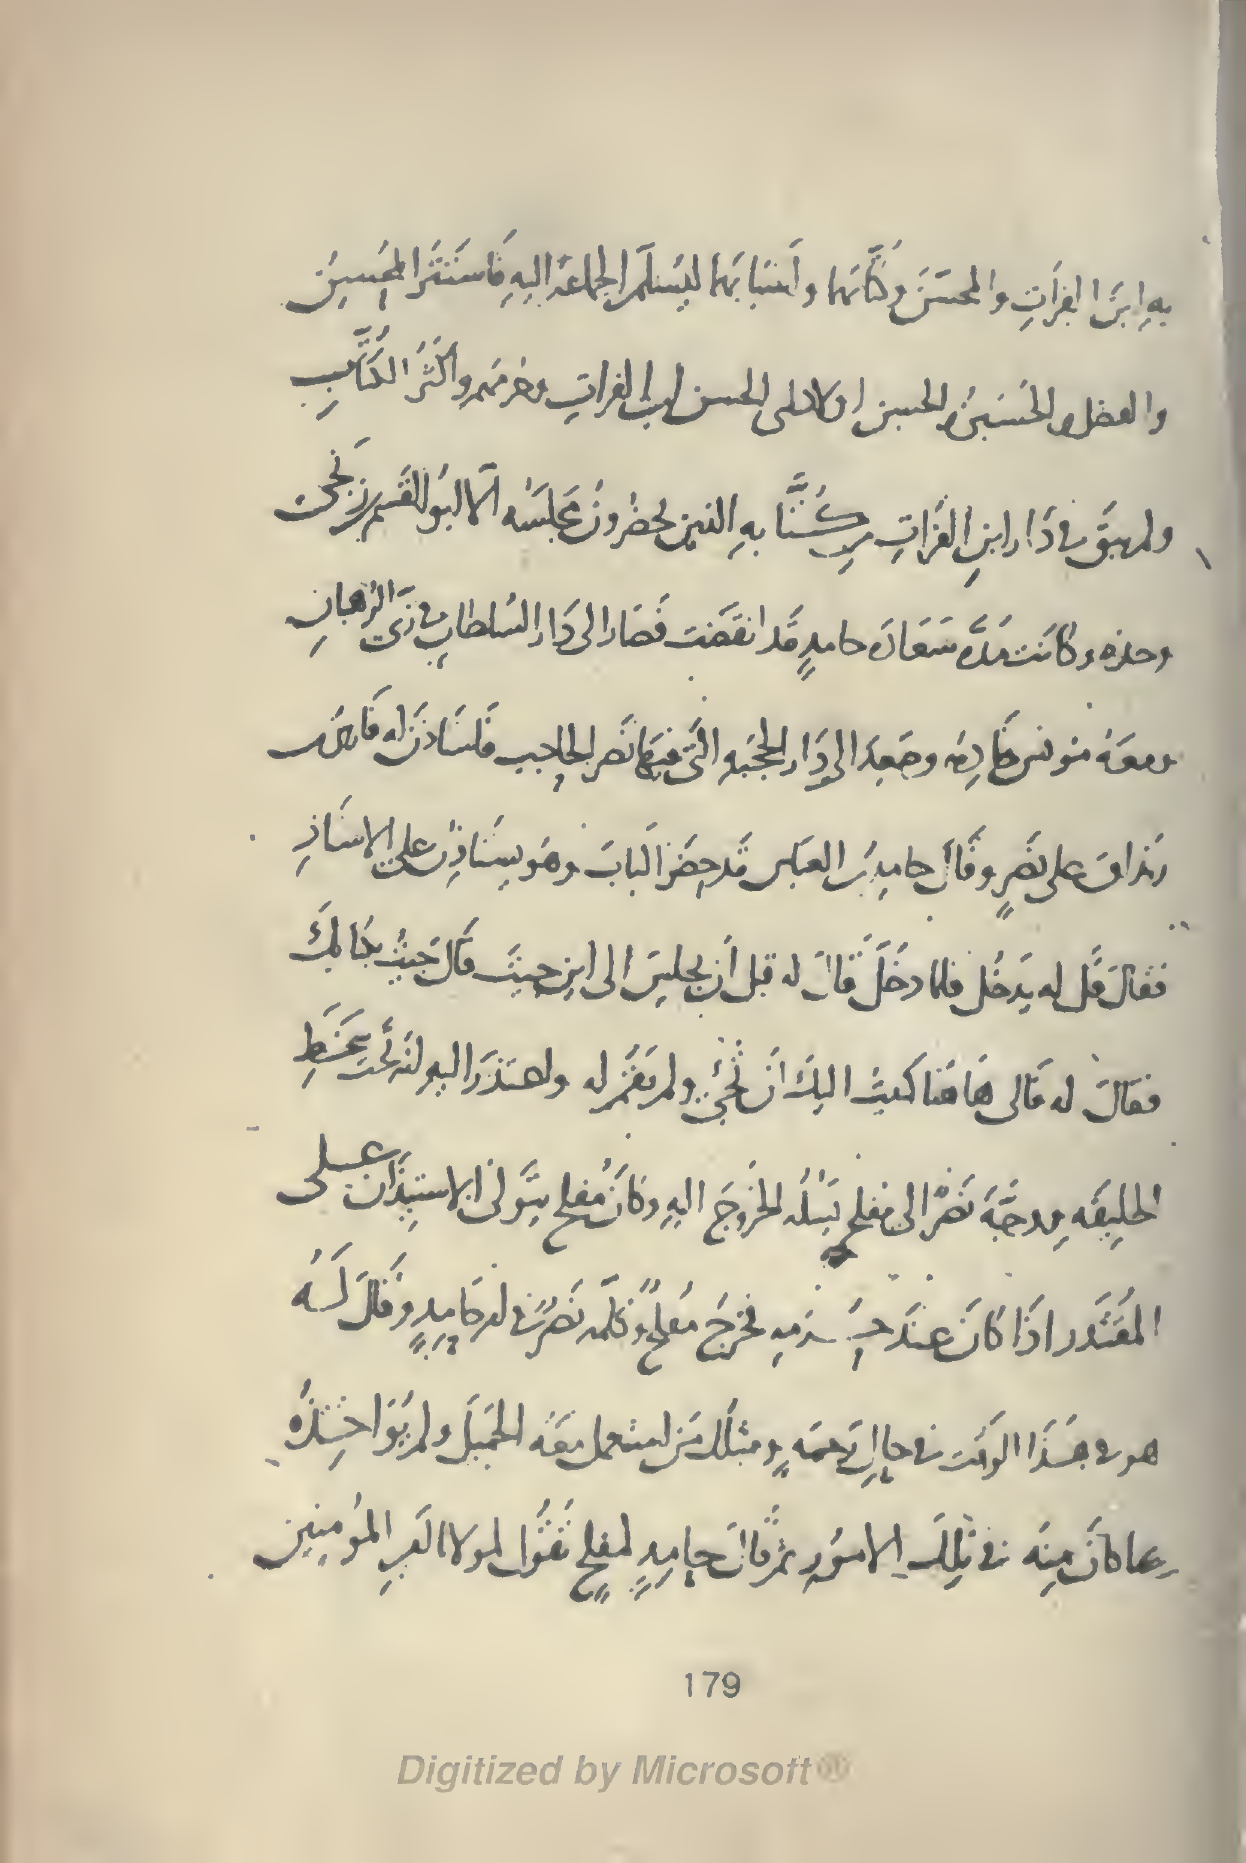 به ابن الفرات والمحسّن وكتّابهما وأسبابهما ليسلم الجماعة اليه فاستتر المحسن
والفضل والحسين والحسن اولاد ابى الحسن ابن الفرات وحرمهم واكثر الكتّاب
ولم يبق فى دار ابن الفرات من كتّابه الذين يحضرون مجلسه الّا ابو القسم بن زنجى
وحده وكانت مدّة سعادة حامد قد انقضت فصار الى دار السلطان فى زىّ الرهبان
ومعه مونس خادمه وصعد الى دار الحجبه التى فيها نصر الحاجب فاستاذن له فارس بن
رنداق على نصر وقال حامد بن العباس قد حضر الباب وهو يستاذن على الاستاذ
فقال قل له يدخل فلما دخل قال له قبل أن يجلس الى اين جيت قال جيت بكتابك
فقال له فالى هاهنا كتبت اليك أن تجئ ولم يقم له واعتذر اليه لنه تحت سخط
الخليفه ووجّه نصر الى مفلح يسله الخروج اليه وكان مفلح يتولى الاستيذان على
المقتدر اذا كان عند حرمه فخرج مفلح وكلمه نصر فى امر حامد وقال له
هو فى هذا الوقت فى حال رحمه ومثلك من استعمل معه الجميل ولم يواخذه
بما كان منه فى تلك الامور ثم قال حامد لمفلح تقول لمولانا امير المؤمنين
179
Digitized by Microsoft®